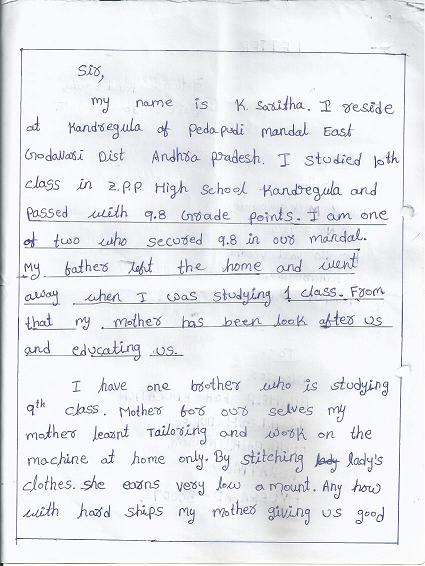 Sir,
my name is K. Saritha. I reside
at Kandregula of Pedapudi mandal East
Godavari Dist Andhra pradesh. I studied 10th
class in Z.P.P High School Kandregula and
passed with 9.8 Grade points. I am one
of two who secured 9.8 in our mandal.
My father left the home and went
away when I was studying 1 class. From
that my mother has been look after us
and educating us.
I have one brother who is studying
9th class. Mother for our selves my
mother learnt Tailoring and work on the
machine at home only. By stitching lady's
clothes. she earns very low amount. Any how
with hard ships my mother giving us good